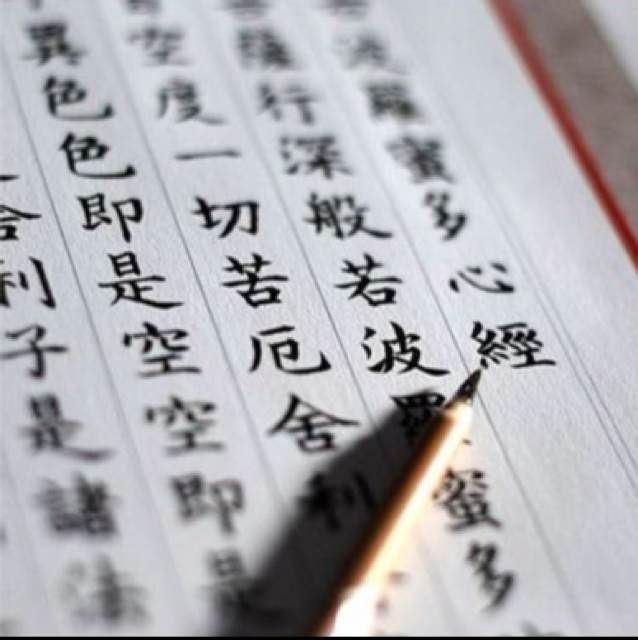 若波羅蜜多心經
菩薩行深般若波羅蜜多
空度一切苦厄舍利
異色色即是空空即是
舍利子是諸法